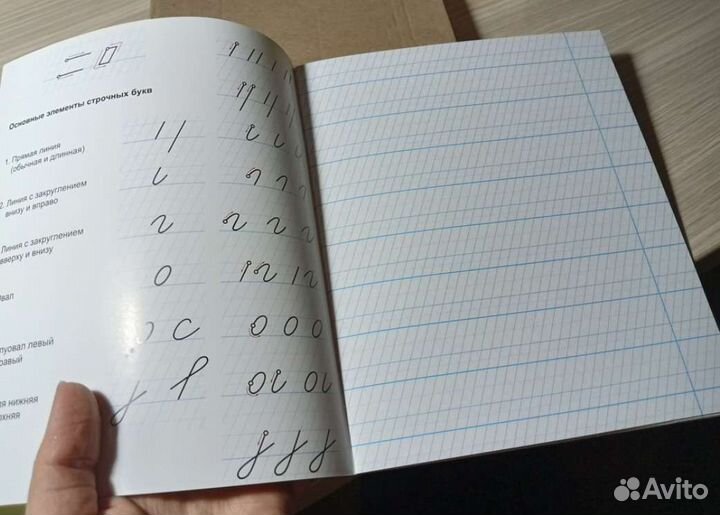 Основные элементы строчных букв
1. Прямая линия
(обычная и длинная)
2. Линия с закруглением
внизу и вправо
Линия с закруглением
вверху и внизу
луовал левый
нижняя
Avito